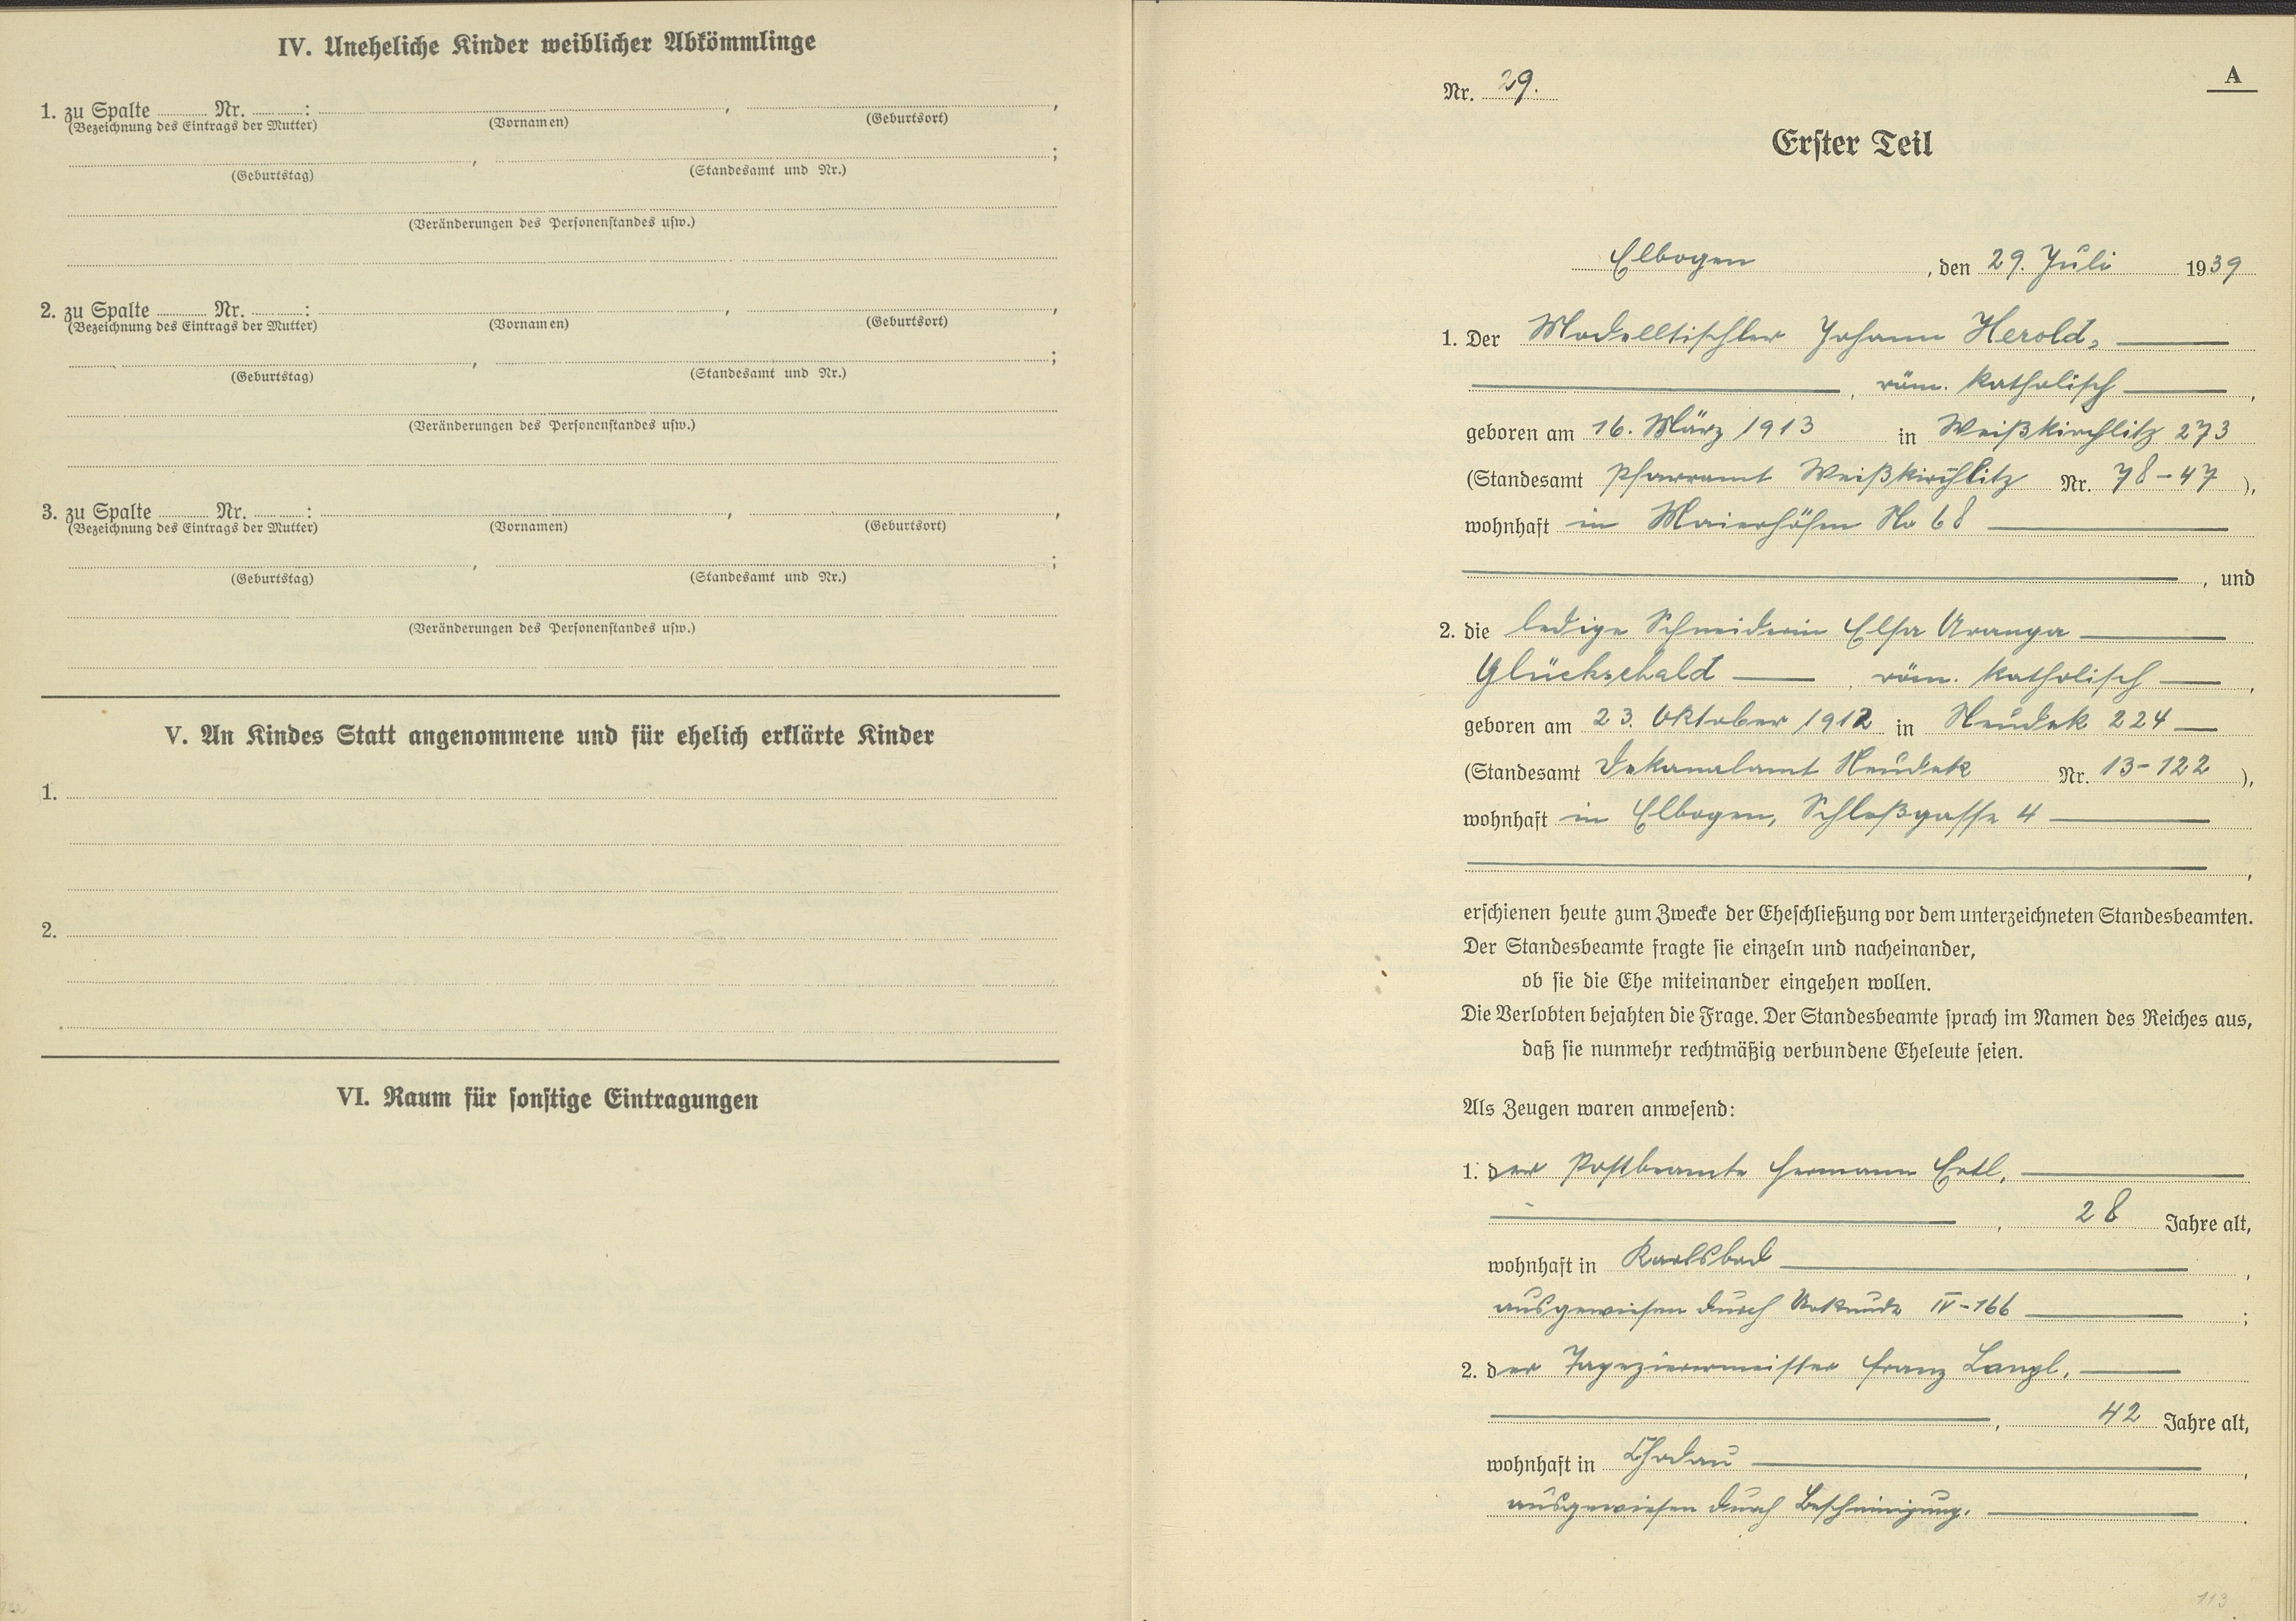 IV. Uneheliche Kinder weiblicher Abkömmlinge
1. zu Spalte ........ Nr. ........: ........, ........,
(Bezeichnung des Eintrags der Mutter) (Vornamen) (Geburtsort)
........, ........;
(Geburtstag) (Standesamt und Nr.)
(Veränderungen des Personenstandes usw.)
2. zu Spalte ........ Nr. ........: ........, ........,
(Bezeichnung des Eintrags der Mutter) (Vornamen) (Geburtsort)
........, ........;
(Geburtstag) (Standesamt und Nr.)
(Veränderungen des Personenstandes usw.)
3. zu Spalte ........ Nr. ........: ........, ........,
(Bezeichnung des Eintrags der Mutter) (Vornamen) (Geburtsort)
........, ........;
(Geburtstag) (Standesamt und Nr.)
(Veränderungen des Personenstandes usw.)
V. An Kindes Statt angenommene und für ehelich erklärte Kinder
1.
2.
VI. Raum für sonstige Eintragungen
A
Nr. 29.
Erster Teil
Elbogen, den 29. Juli 1939
1. Der Modelltischler Johann Herold,
, röm. katholisch,
geboren am 16. März 1913 in Weißkirchlitz 273
(Standesamt Pfarramt Weißkirchlitz Nr. 78-47),
wohnhaft in Maierhöfen No 68
, und
2. die ledige Schneiderin Elsa Aranga
Glückschald, röm. katholisch,
geboren am 23. Oktober 1912 in Neudek 224
(Standesamt Dekanalamt Neudek Nr. 13-122),
wohnhaft in Elbogen, Schloßgasse 4
,
erschienen heute zum Zwecke der Eheschließung vor dem unterzeichneten Standesbeamten.
Der Standesbeamte fragte sie einzeln und nacheinander,
ob sie die Ehe miteinander eingehen wollen.
Die Verlobten bejahten die Frage. Der Standesbeamte sprach im Namen des Reiches aus,
daß sie nunmehr rechtmäßig verbundene Eheleute seien.
Als Zeugen waren anwesend:
1. der Postbeamte Hermann Ertl,
, 28 Jahre alt,
wohnhaft in Karlsbad,
ausgewiesen durch Urkunde IV-166;
2. der Tapezierermeister Franz Langl,
, 42 Jahre alt,
wohnhaft in Chodau,
ausgewiesen durch Bescheinigung.
113